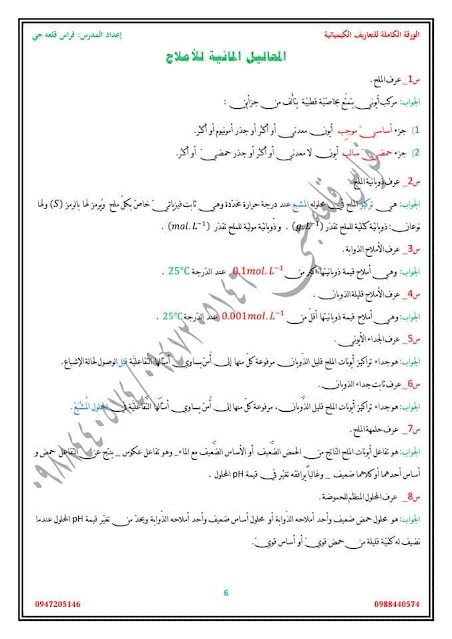 الورقة الكاملة للتعاريف الكيميائية
إعداد المدرس: فراس قلعه جي
المحاليل المائية للأملاح
س1_ عرف الملح .
الجواب: مركب أيوني يتمتّع بخاصّيّة قطبيّة يتألف من جزأين :
1) جزء أساسي موجب أيون معدني أو أكثر أو جذر أمونيوم أو أكثر.
2) جزء حمضي سالب أيون لا معدني أو أكثر أو جذر حمضي أو أكثر.
س2_ عرف ذوبانية الملح.
الجواب: هي تركيز الملح في محلوله المشبع عند درجة حرارة محدّدة وهي ثابت فيزيائي خاصّ بكلّ ملح ويُرمز لها بالرمز (S) ولها
نوعان: ذوبانيّة كتليّة للملح تقدّر (g.L⁻¹) . و ذوبانيّة موليّة للملح تقدّر (mol.L⁻¹) .
س3_ عرف الأملاح الذوابة .
الجواب: وهي أملاح قيمة ذوبانيّتها أكبر من 0.1mol.L⁻¹ عند الدّرجة 25°C .
س4_ عرف الأملاح قليلة الذوبان .
الجواب: وهي أملاح قيمة ذوبانيّتها أقلّ من 0.001mol.L⁻¹ عند الدّرجة 25°C .
س5_ عرف الجداء الأيوني .
الجواب: هو جداء تراكيز أيونات الملح قليل الذوبان مرفوعة كلّ منها إلى أُسّ يساوي أمثالها التّفاعليّة قبل الوصول لحالة الإشباع.
س6_ عرف ثابت جداء الذوبان .
الجواب: هو جداء تراكيز أيونات الملح قليل الذّوبان، مرفوعة كلّ منها إلى أُسّ يساوي أمثالها التّفاعليّة في المحلول المُشبَع .
س7_ عرف حلمهة الملح .
الجواب: هو تفاعل أيونات الملح الناتج من الحمض الضّعيف أو الأساس الضّعيف مع الماء _ وهو تفاعل عكوس _ ينتج عن التفاعل حمض و
أساس أحدهما أو كلاهما ضعيف _ وغالباً يرافقه تغيّر في قيمة pH المحلول .
س8_ عرف المحلول المنظم للحموضة .
الجواب: هو محلول حمض ضعيف وأحد أملاحه الذّوابة أو محلول أساس ضعيف وأحد أملاحه الذّوابة ويحدّ من تغيّر قيمة pH المحلول عندما
نضيف له كمّيّة قليلة من حمض قويّ أو أساس قويّ.
فراس قلعه جي
٠٩٨٨٤٤٠٥٧٤/٠٩٤٧٢٠٥١٤٦
6
0988440574
0947205146